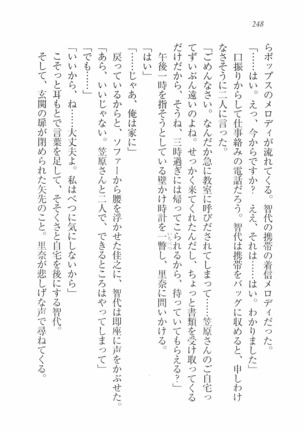 248
らポップスのメロディが流れてくる。智代の携帯の着信メロディだ。
「はい。えっ、今からですか？　ええ、それは……はい。わかりました」
口振りからして仕事絡みの電話だろう。智代は携帯をバッグに収めると、申しわけ
なさそうに二人に言った。
「ごめんなさい。なんだか急に教室に呼びだされてしまって……笠原さんのご自宅っ
てずいぶん遠いのよね。せっかく来てくれたんだし、ちょっと書類を受け取ってくる
だけだから、そうね、三時過ぎには帰ってこられるから、待っていてもらえる？」
午後一時を指そうとしている壁かけ時計を一瞥し、里奈に問いかける。
「はい」
「……じゃあ、俺は家に」
戻っているからと、ソファーから腰を浮かせた佳之に、智代は即座に声をかぶせた。
「あら、いいじゃない。笠原さんと二人で、できるところはやってしまって」
「でも……」
「いいから、ね……大丈夫よ。私はべつに気にしないから」
こそっと耳もとで言葉を足して、そそくさと自宅を後にする智代。
そして、玄関の扉が閉められた矢先のこと。里奈が悲しげな声で尋ねてくる。